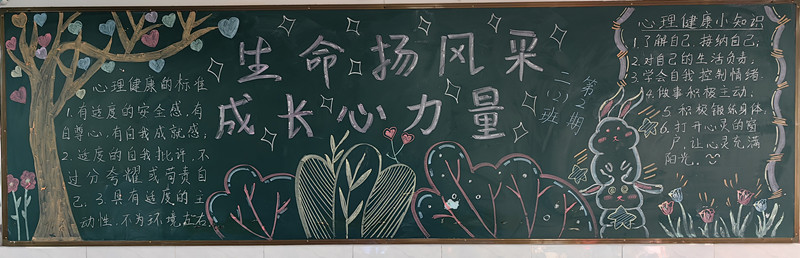 心理健康的标准
1.有适度的安全感,有
自尊心,有自我成就感;
2.适度的自我批评,不
过分夸耀或苛责自
己,3.具有适度的主
动性,不为环境左右
生命扬风采
成长心力量
二(2)班
第2期
心理健康小知识
1.了解自己,接纳自己,
2.对自己的生活负责,
3.学会自我控制情绪
4.做事积极主动,
5.积极锻炼身体
6.打开心灵的窗
户,让心灵充满
阳光。